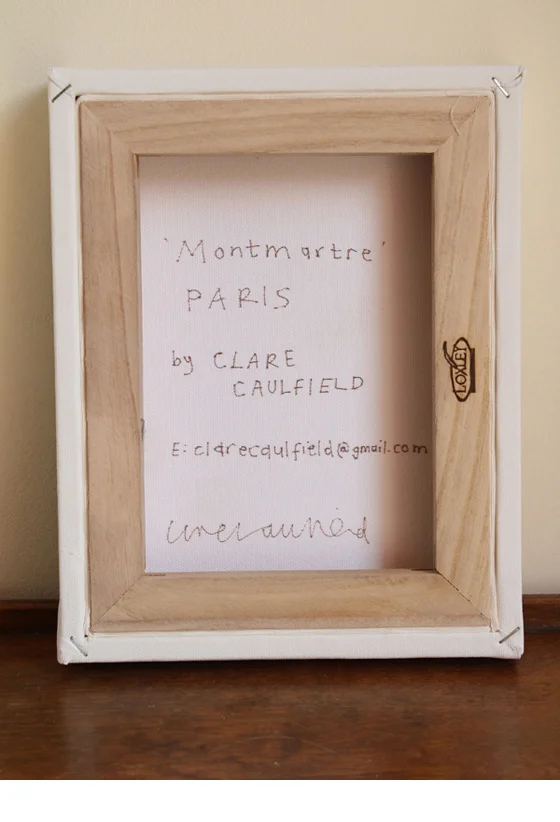 'Montmartre'
PARIS
by CLARE
CAULFIELD
E: clarecaulfield@gmail.com
LOXLEY